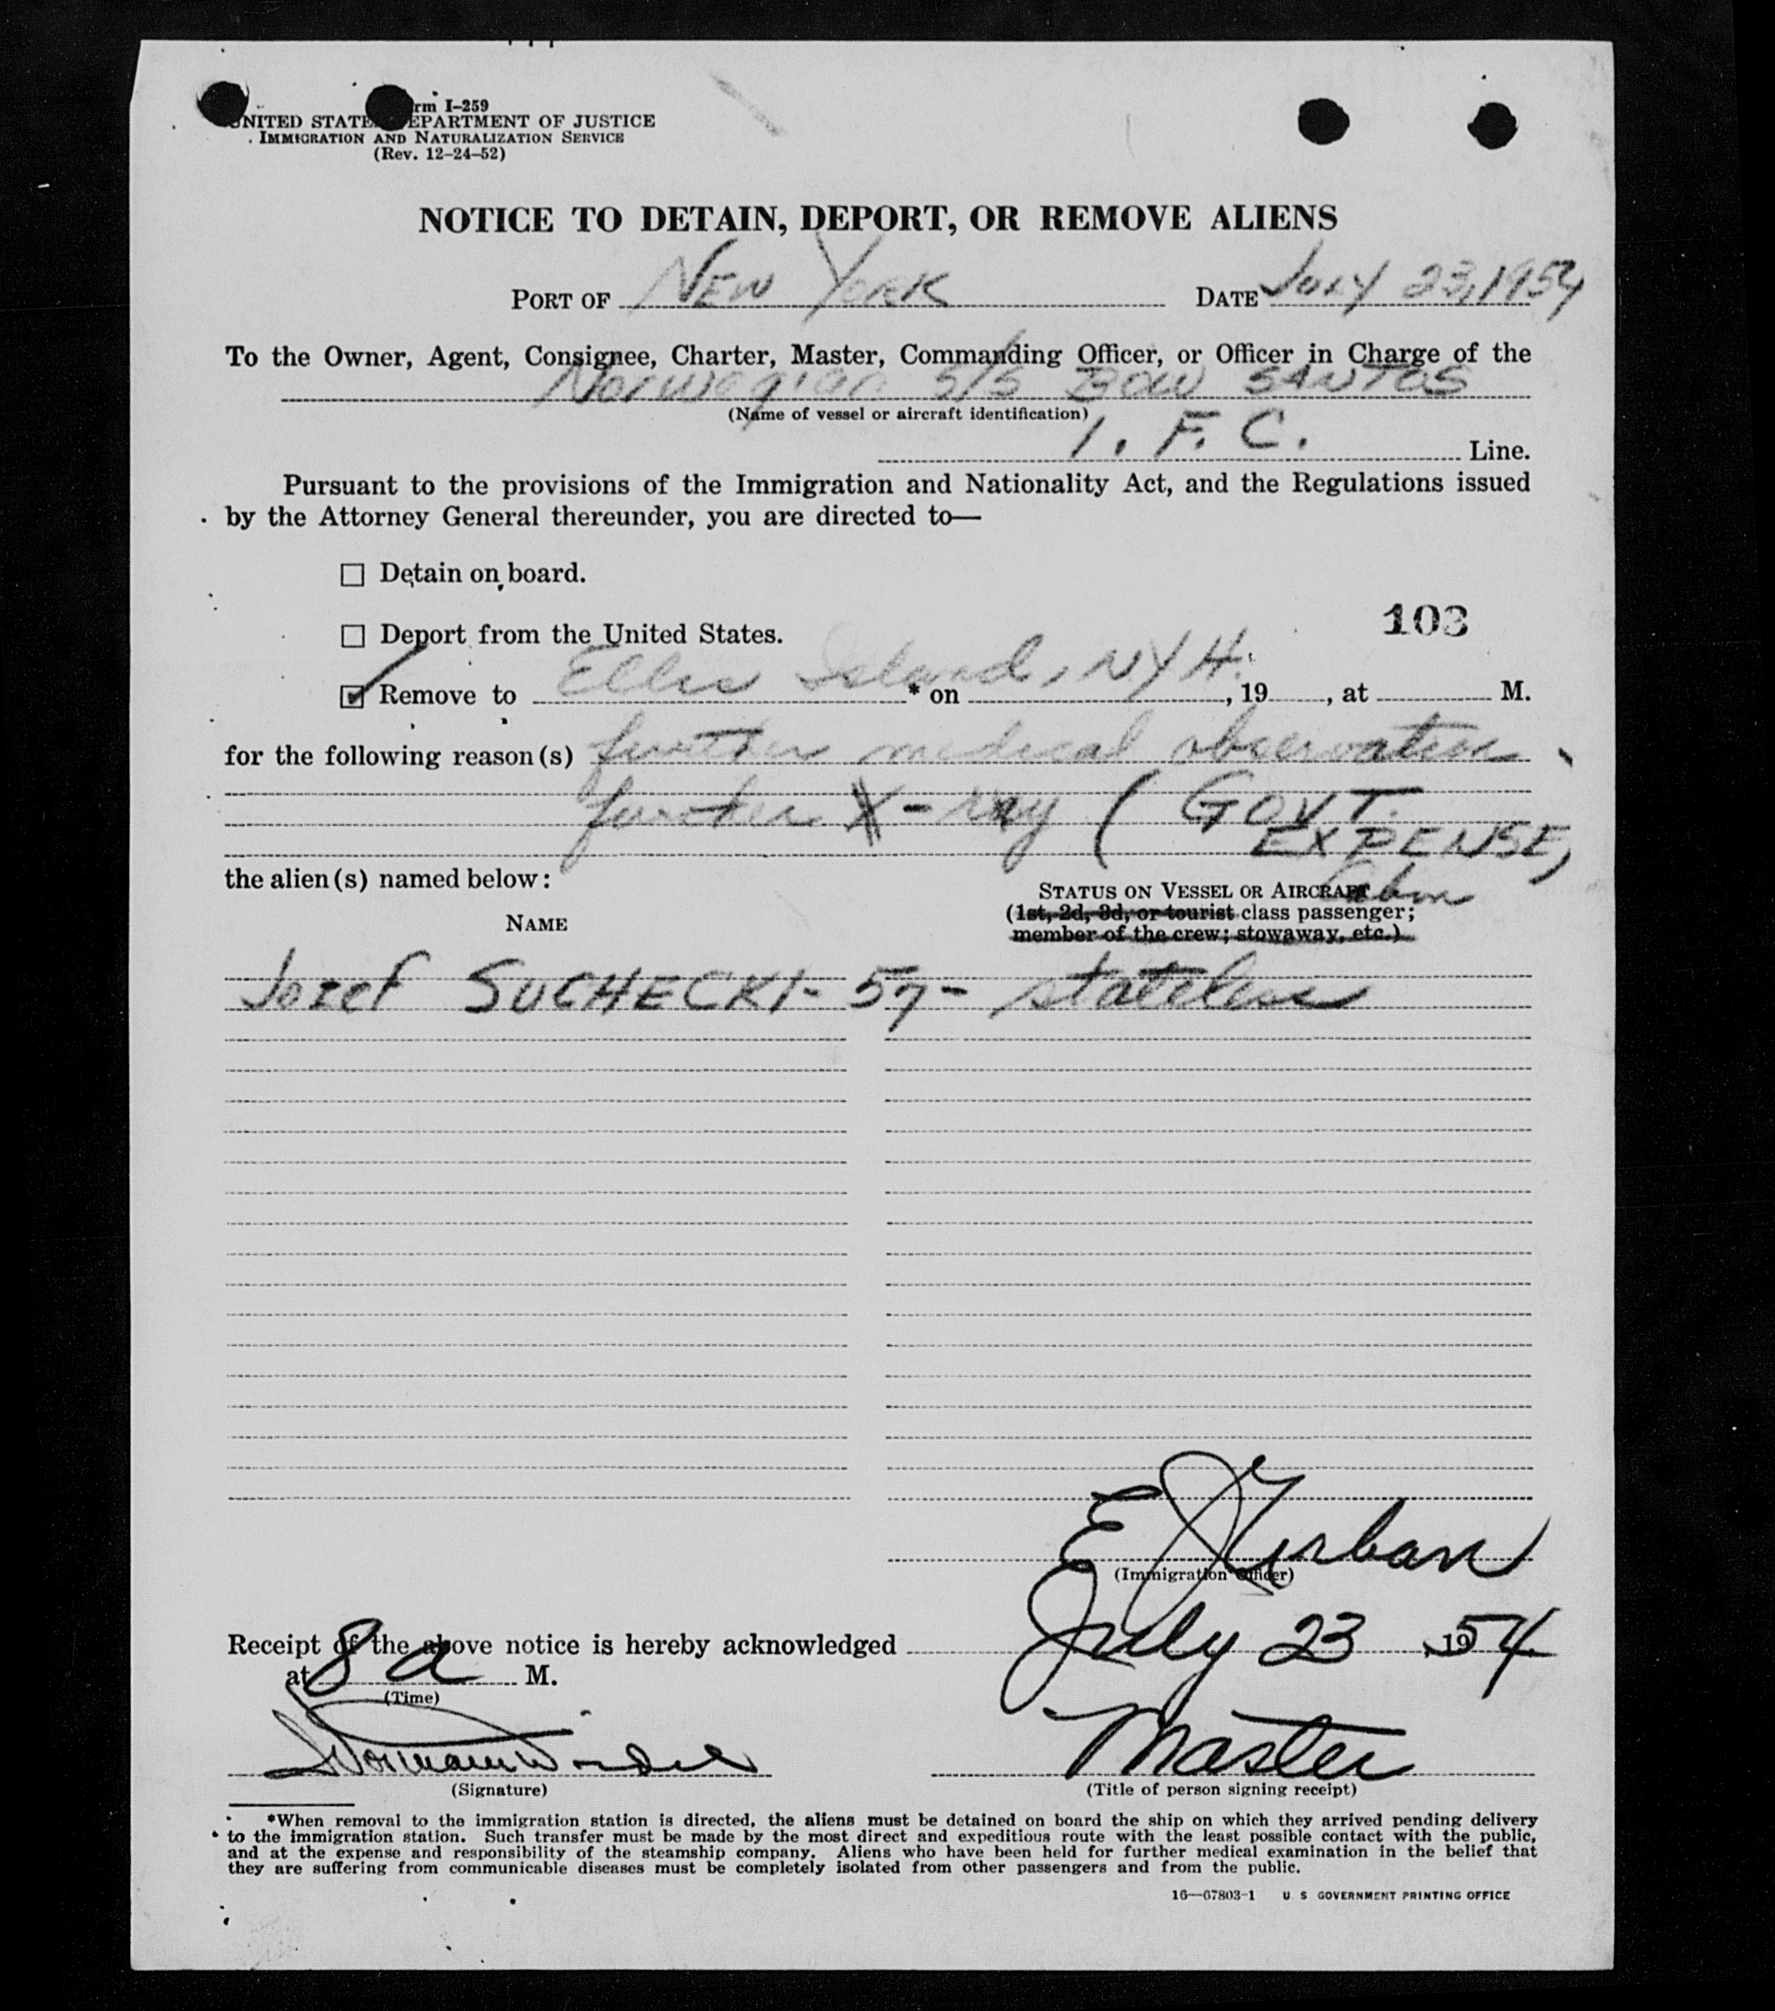 rm I-259
UNITED STATE EPARTMENT OF JUSTICE
IMMIGRATION AND NATURALIZATION SERVICE
(Rev. 12-24-52)
NOTICE TO DETAIN, DEPORT, OR REMOVE ALIENS
PORT OF NEW YORK DATE JULY 23, 1954
To the Owner, Agent, Consignee, Charter, Master, Commanding Officer, or Officer in Charge of the
Norwegian S/S BOW SANTOS
(Name of vessel or aircraft identification)
I. F. C. Line.
Pursuant to the provisions of the Immigration and Nationality Act, and the Regulations issued
by the Attorney General thereunder, you are directed to—
☐ Detain on board.
☐ Deport from the United States.
103
☑ Remove to Ellis Island, NYH. * on , 19 , at M.
for the following reason(s) further medical observation
further X-ray ( GOVT.
EXPENSE)
the alien(s) named below:
NAME
STATUS ON VESSEL OR AIRCRAFT
(1st, 2d, 3d, or tourist class passenger;
member of the crew; stowaway, etc.)
Jozef SUCHECKI - 57 - stateless
E J Kurban
(Immigration Officer)
Receipt of the above notice is hereby acknowledged July 23, 1954
at 8 a M.
(Time)
Master
(Signature)
(Title of person signing receipt)
*When removal to the immigration station is directed, the aliens must be detained on board the ship on which they arrived pending delivery
to the immigration station. Such transfer must be made by the most direct and expeditious route with the least possible contact with the public,
and at the expense and responsibility of the steamship company. Aliens who have been held for further medical examination in the belief that
they are suffering from communicable diseases must be completely isolated from other passengers and from the public.
16—67803-1 U S GOVERNMENT PRINTING OFFICE